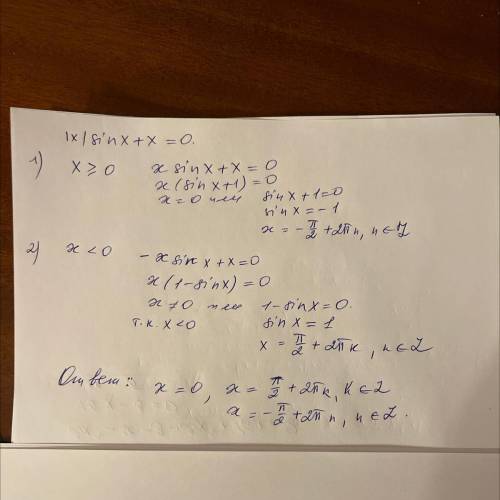 |x| sin x + x = 0.
1) x ≥ 0 x sin x + x = 0
x (sin x + 1) = 0
x = 0 или sin x + 1 = 0
sin x = -1
x = -π/2 + 2πn, n ∈ Z
2) x < 0 - x sin x + x = 0
x (1 - sin x) = 0
x ≠ 0 или 1 - sin x = 0.
т.к. x < 0 sin x = 1
x = π/2 + 2πk, k ∈ Z
Ответ: x = 0, x = π/2 + 2πk, k ∈ Z
x = -π/2 + 2πn, n ∈ Z.